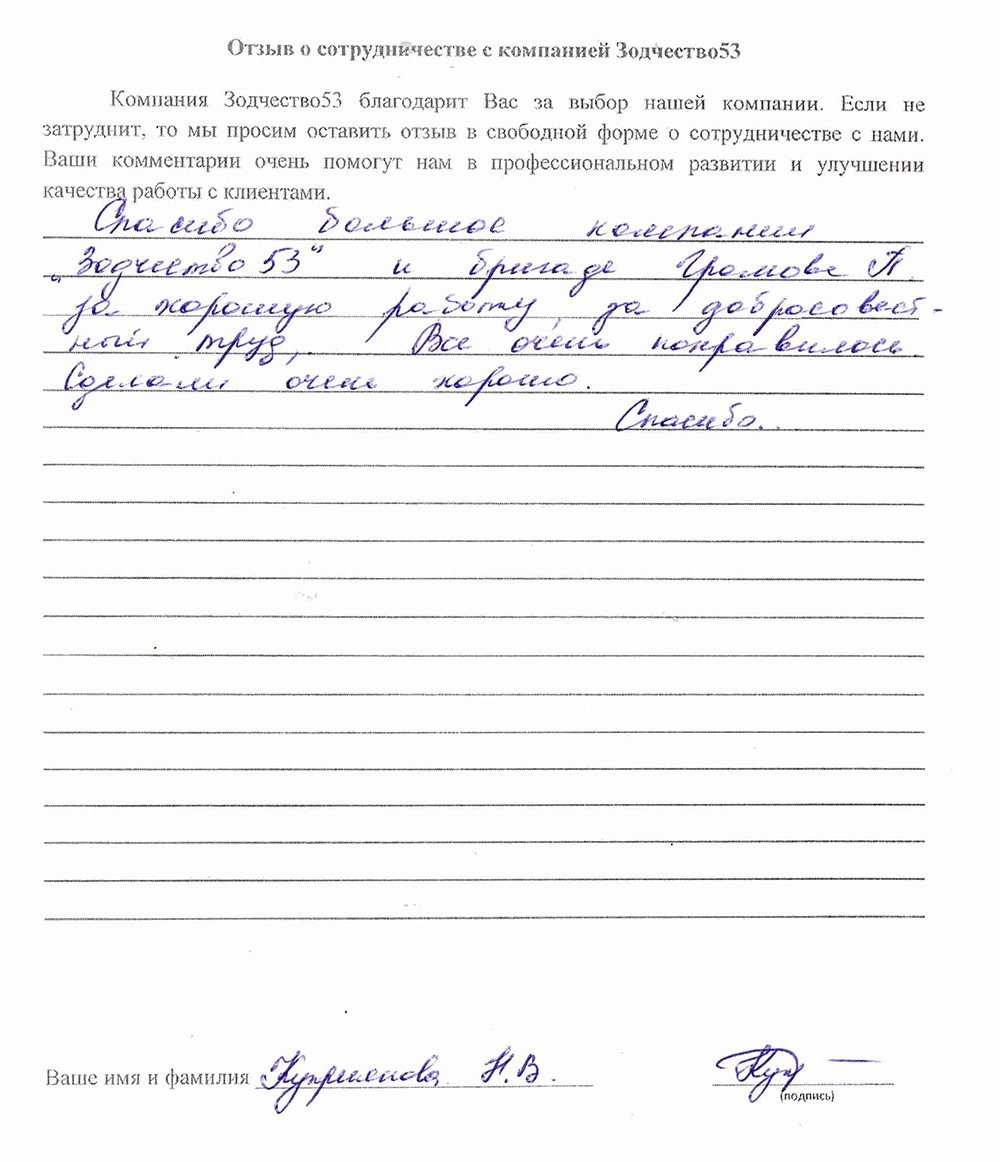 Отзыв о сотрудничестве с компанией Зодчество53
Компания Зодчество53 благодарит Вас за выбор нашей компании. Если не
затруднит, то мы просим оставить отзыв в свободной форме о сотрудничестве с нами.
Ваши комментарии очень помогут нам в профессиональном развитии и улучшении
качества работы с клиентами.
Спасибо большое компании
„Зодчество 53“ и бригаде Громова А.
за хорошую работу, за добросовест-
ный труд, Все очень понравилось.
Сделали очень хорошо.
Спасибо..
Ваше имя и фамилия Куприянова Н.В.
(подпись)